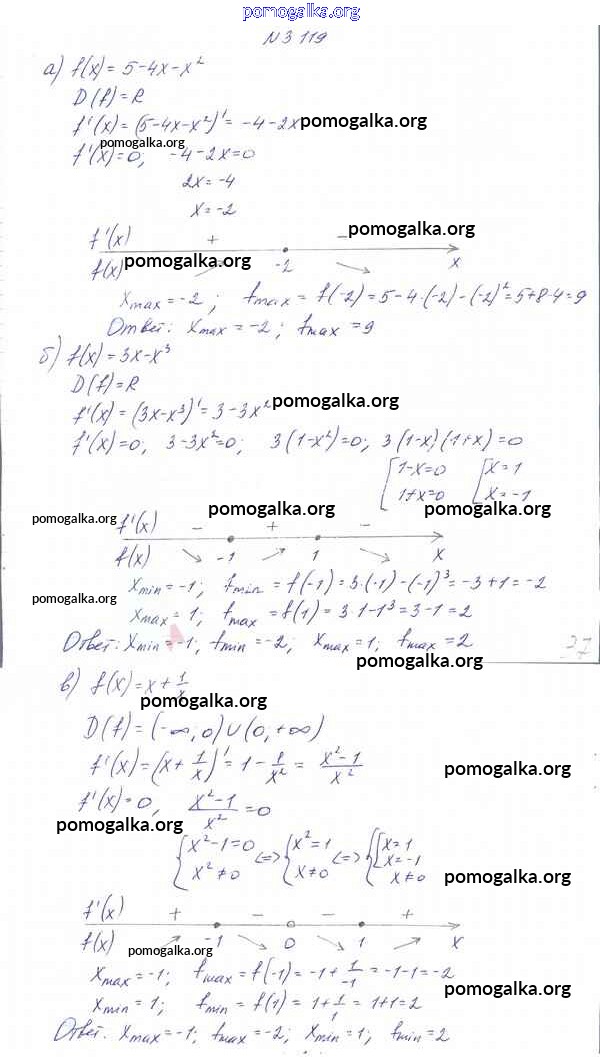 pomogalka.org
N3 119
а) f(x) = 5-4x-x²
D(f)=R
f'(x) = (5-4x-x²)' = -4-2x pomogalka.org
pomogalka.org
f'(x)=0; -4-2x=0
2x=-4
x=-2
pomogalka.org
f'(x) + -
f(x) pomogalka.org -2 x
x max = -2; f max = f(-2) = 5-4·(-2)-(-2)² = 5+8-4=9
Ответ: x max = -2; f max = 9
б) f(x) = 3x-x³
D(f)=R
f'(x) = (3x-x³)' = 3-3x² pomogalka.org
f'(x)=0; 3-3x²=0; 3(1-x²)=0; 3(1-x)(1+x)=0
[1-x=0 [x=1
1+x=0 x=-1
pomogalka.org pomogalka.org
pomogalka.org f'(x) - + -
f(x) -1 1 x
x min = -1; f min = f(-1) = 3·(-1)-(-1)³ = -3+1 = -2
pomogalka.org
x max = 1; f max = f(1) = 3·1-1³ = 3-1 = 2
Ответ: x min = -1; f min = -2; x max = 1; f max = 2
37
pomogalka.org
в) f(x) = x + 1/x
pomogalka.org
D(f) = (-∞; 0) ∪ (0; +∞)
f'(x) = (x + 1/x)' = 1 - 1/x² = x²-1/x²
pomogalka.org
f'(x)=0, x²-1/x² = 0
pomogalka.org
{x²-1=0 <=> {x²=1 <=> {[x=1
x=-1
x²≠0 x≠0 x≠0
pomogalka.org
f'(x) + - - +
f(x) -1 0 1 x
pomogalka.org
pomogalka.org
x max = -1; f max = f(-1) = -1 + 1/-1 = -1-1 = -2
x min = 1; f min = f(1) = 1 + 1/1 = 1+1 = 2
pomogalka.org
Ответ: x max = -1; f max = -2; x min = 1; f min = 2